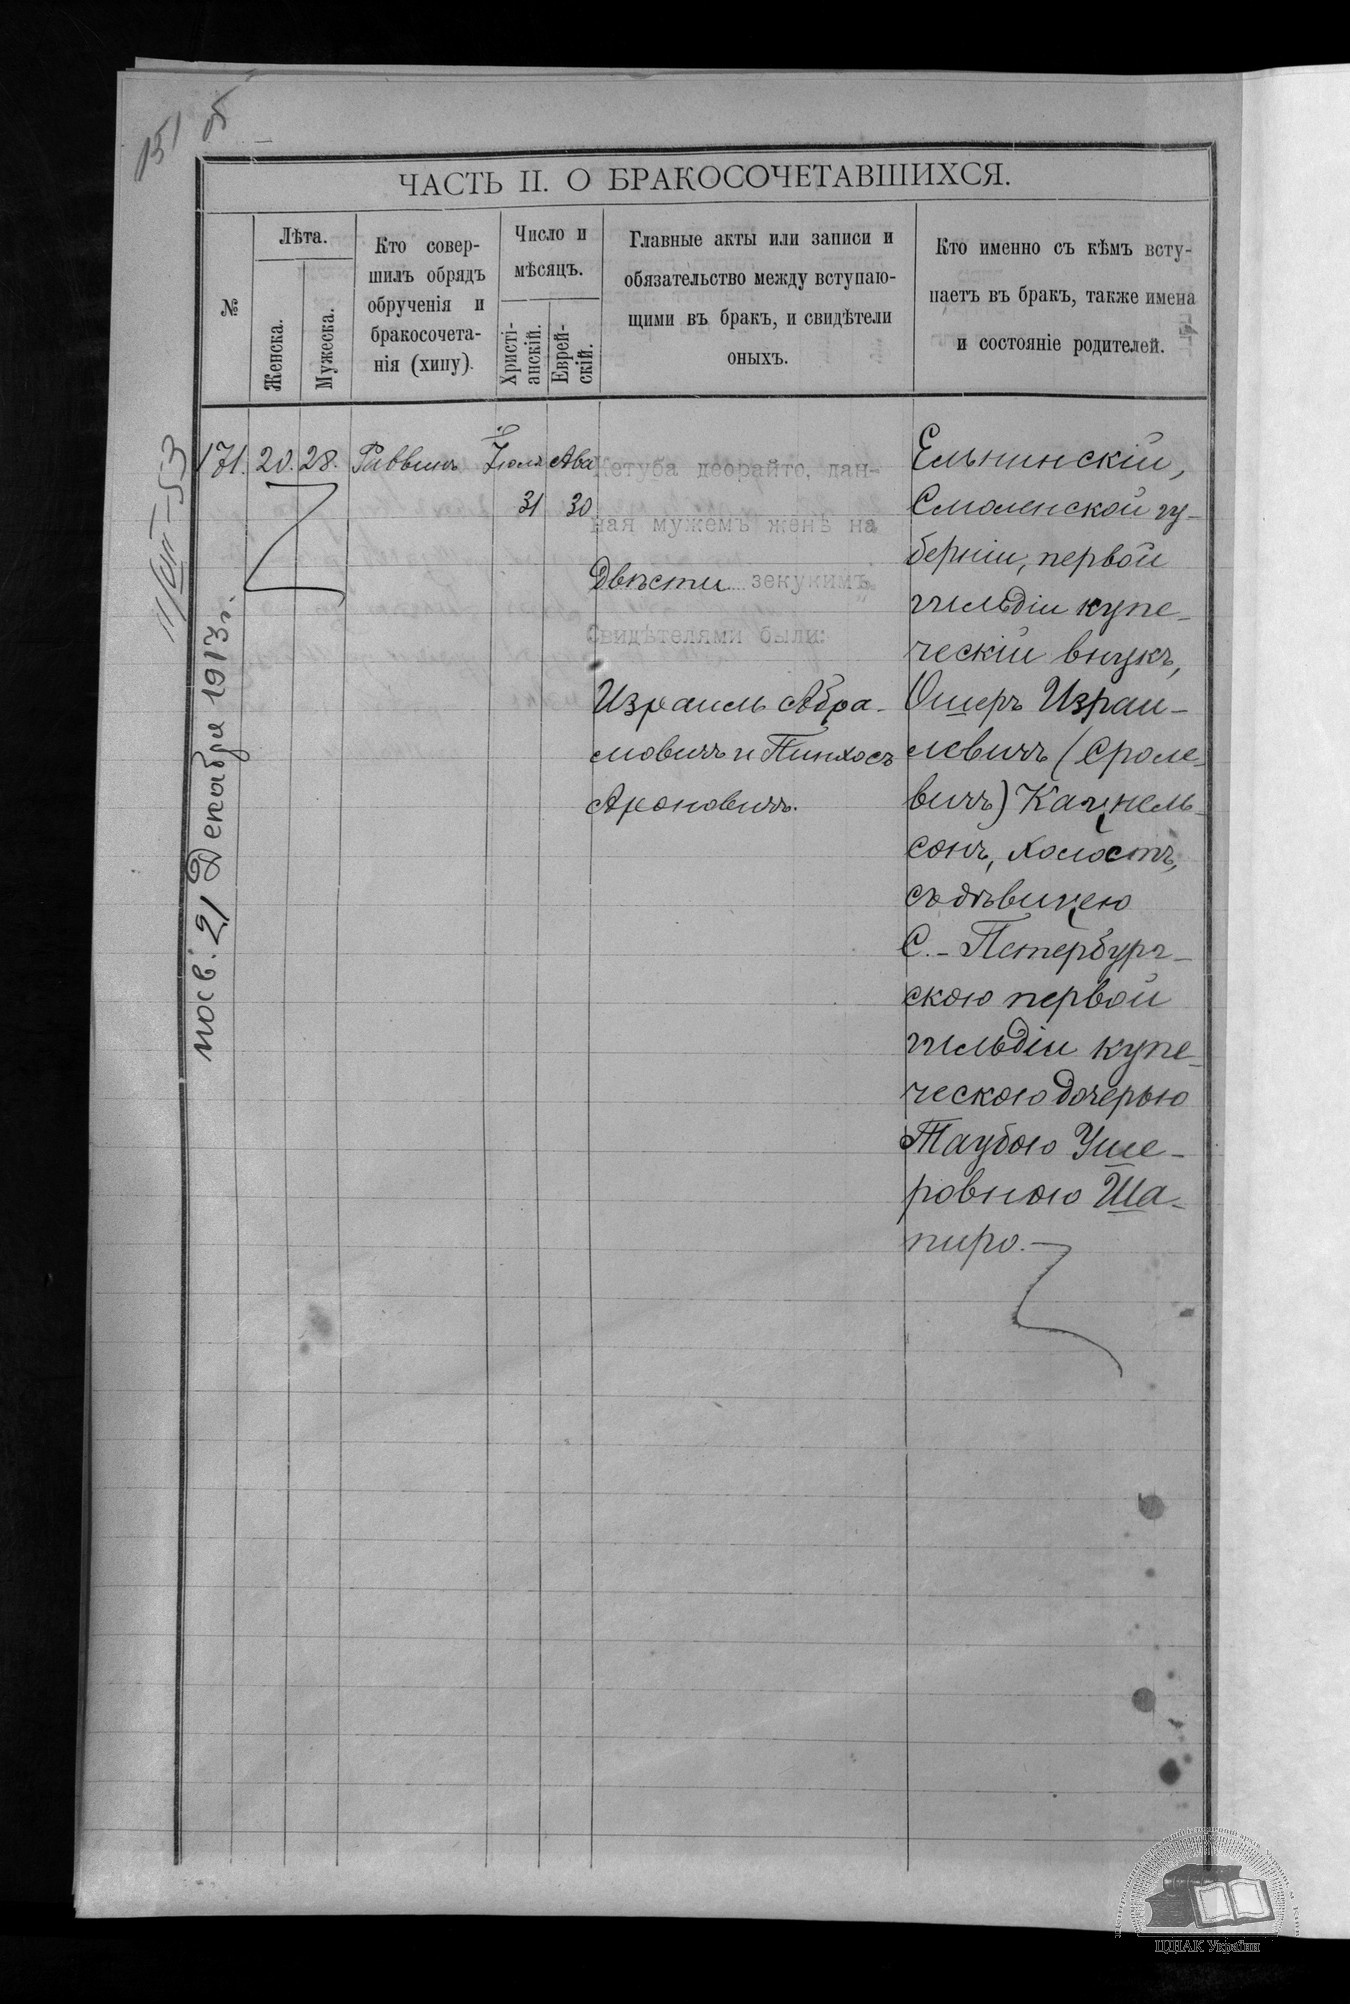 151 об
ЧАСТЬ II. О БРАКОСОЧЕТАВШИХСЯ.
№
Лѣта.
Женска.
Мужеска.
Кто совер-
шилъ обрядъ
обрученія и
бракосочета-
нія (хипу).
Число и
мѣсяцъ.
Христі-
анскій.
Еврей-
скій.
Главные акты или записи и
обязательство между вступаю-
щими въ бракъ, и свидѣтели
оныхъ.
Кто именно съ кѣмъ всту-
паетъ въ бракъ, также имена
и состояніе родителей.
171. 20. 28. Раввинъ Іюля Ава
31 30
Кетуба деорайто, дан-
ная мужемъ женѣ на
Двѣсти зекукимъ
Свидѣтелями были:
Израиль Абра-
мовичъ и Пинхосъ
Ароновичъ.
Ельнинскій,
Смоленской гу-
берніи, первой
гильдіи купе-
ческій внукъ,
Ошеръ Израи-
левичъ (Сроле-
вичъ) Кацнель-
сонъ, холостъ,
съ дѣвицею
С.-Петербург-
скою первой
гильдіи купе-
ческою дочерью
Таубою Уше-
ровною Ша-
пиро.
21 Декабря 1913 г.
ЦДІАК України